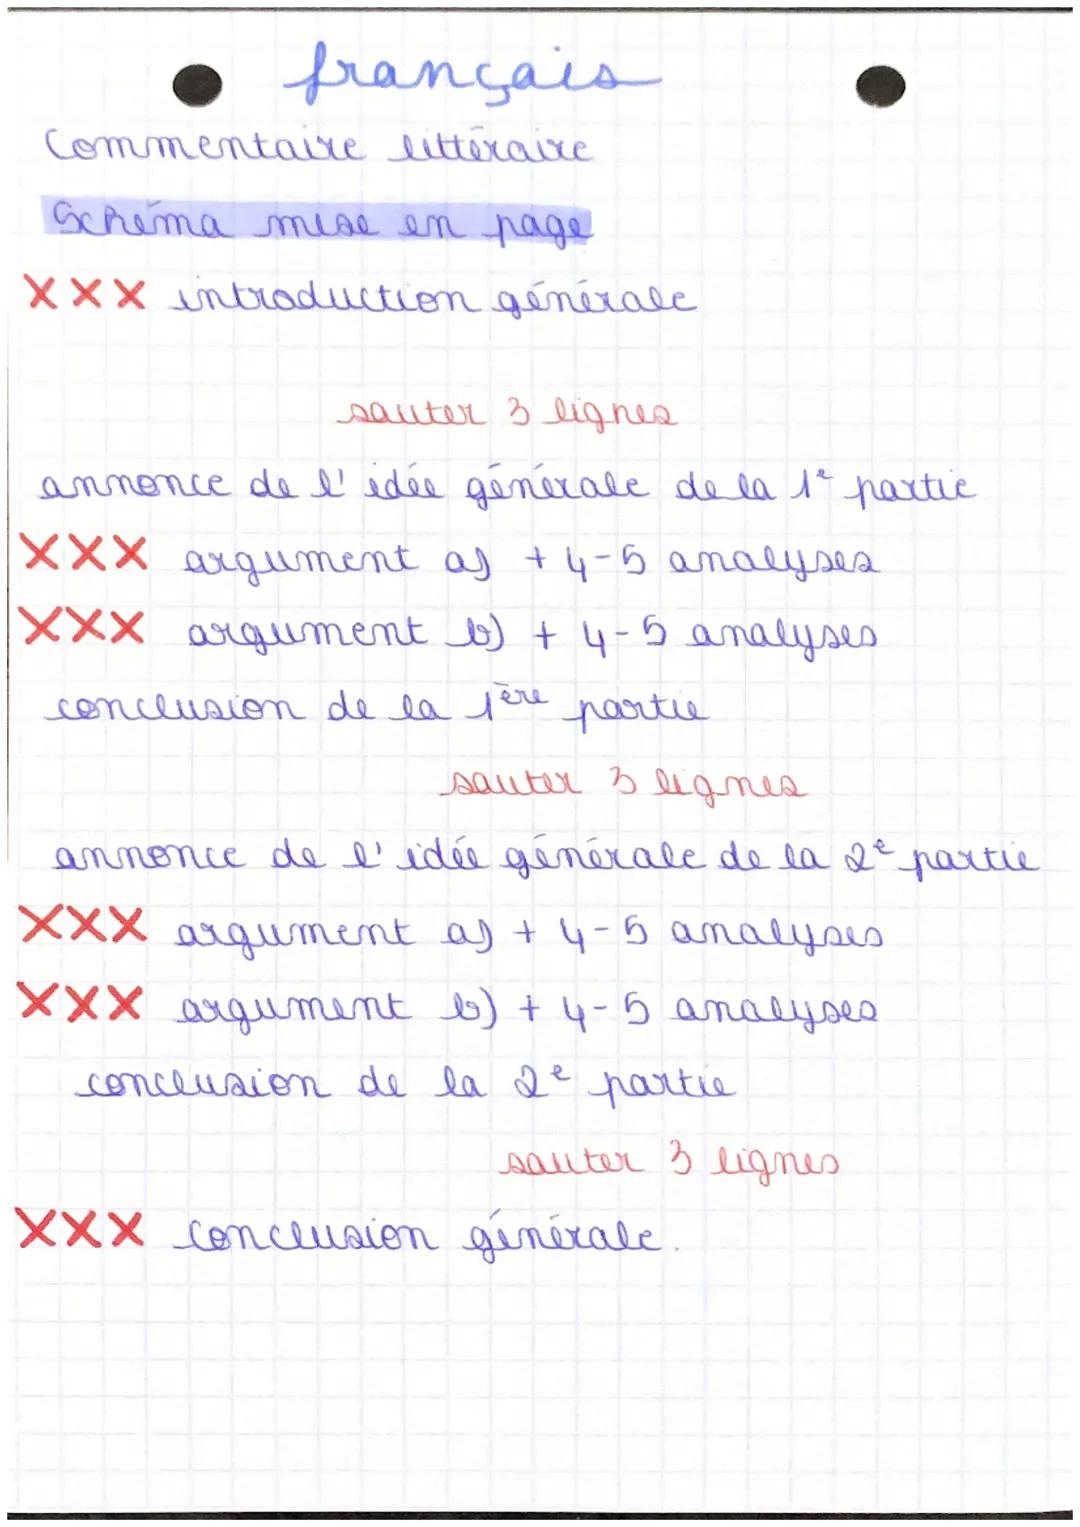 français
Commentaire littéraire
Schéma mise en page
XXX introduction générale
sauter 3 lignes
annonce de l'idée générale de la 1e partie
XXX argument a) + 4-5 analyses
XXX argument b) + 4-5 analyses
conclusion de la 1ère partie
sauter 3 lignes
annonce de l'idée générale de la 2e partie
XXX argument a) + 4-5 analyses
XXX argument b) + 4-5 analyses
conclusion de la 2e partie
sauter 3 lignes
XXX conclusion générale.